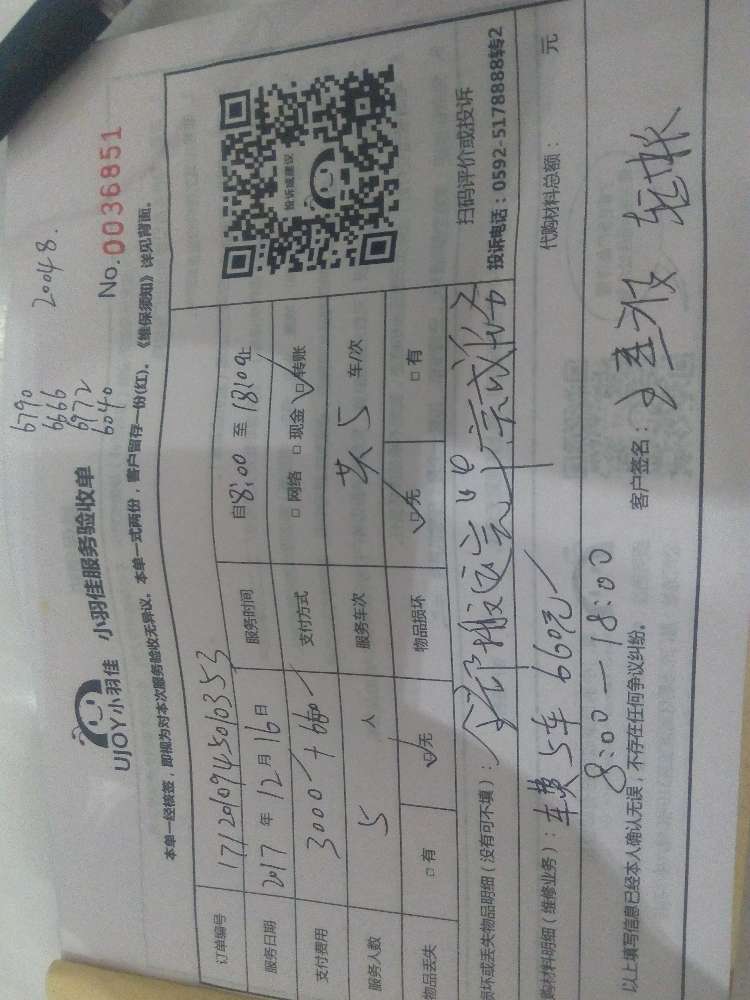 6790
6666
6972
6040
20048.
UJOY小羽佳 小羽佳服务验收单
No.0036851
本单一经核签，即视为对本次服务验收无异议。本单一式两份，客户留存一份(红)。《维保须知》详见背面。
订单编号 1712010945010353
服务日期 2017 年 12 月 16 日 服务时间 自 8:00 至 18:00 止
支付费用 3000 + 660 支付方式 □ 网络 □ 现金 □ 转账
服务人数 5 人 服务车次 共 5 车/次
物品丢失 □ 有 □ 无 物品损坏 □ 无 □ 有
投诉或建议
扫码评价或投诉
投诉电话：0592-5178888转2
损坏或丢失物品明细（没有可不填）：
购材料明细（维修业务）：车费 5车 660元 代购材料总额： 元
8:00—18:00
以上填写信息已经本人确认无误，不存在任何争议纠纷。 客户签名：